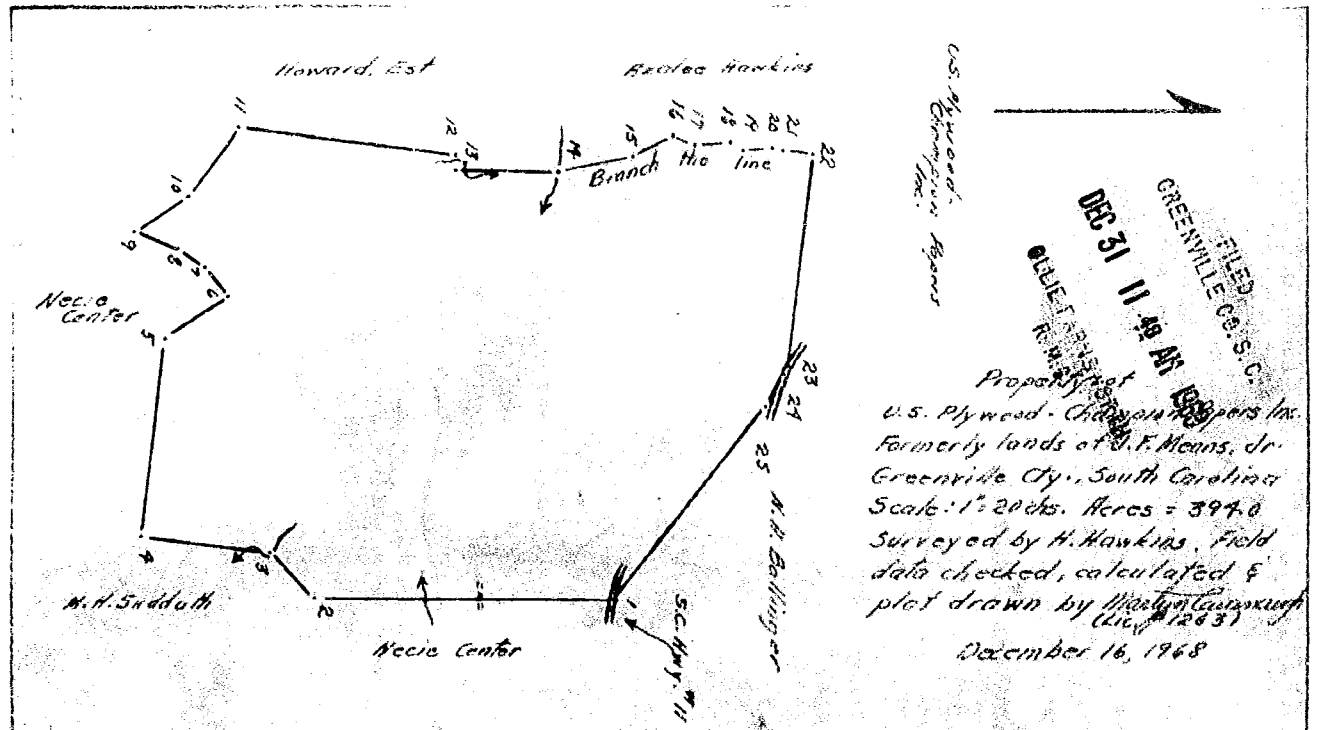 Howard, Est
Azalee Hawkins
U.S. Plywood-
Champion Papers
Inc.
11
12
13
14
15
16
17
18
19
20
21
22
Branch the line
10
9
8
7
6
5
Necie
Center
4
3
2
1
23
24
25
M.H. Suddath
Necie Center
S.C. Hwy. #11
Ballinger
FILED
GREENVILLE CO. S. C.
DEC 31 11 48 AM
OLLIE FARNSWORTH
R. M. C.
Property of
U.S. Plywood - Champion Papers Inc.
Formerly lands of J.F. Means, Jr.
Greenville Cty., South Carolina
Scale: 1"=20chs. Acres = 394.0
Surveyed by H. Hawkins. Field
data checked, calculated &
plot drawn by
(Lic. #1263)
December 16, 1968